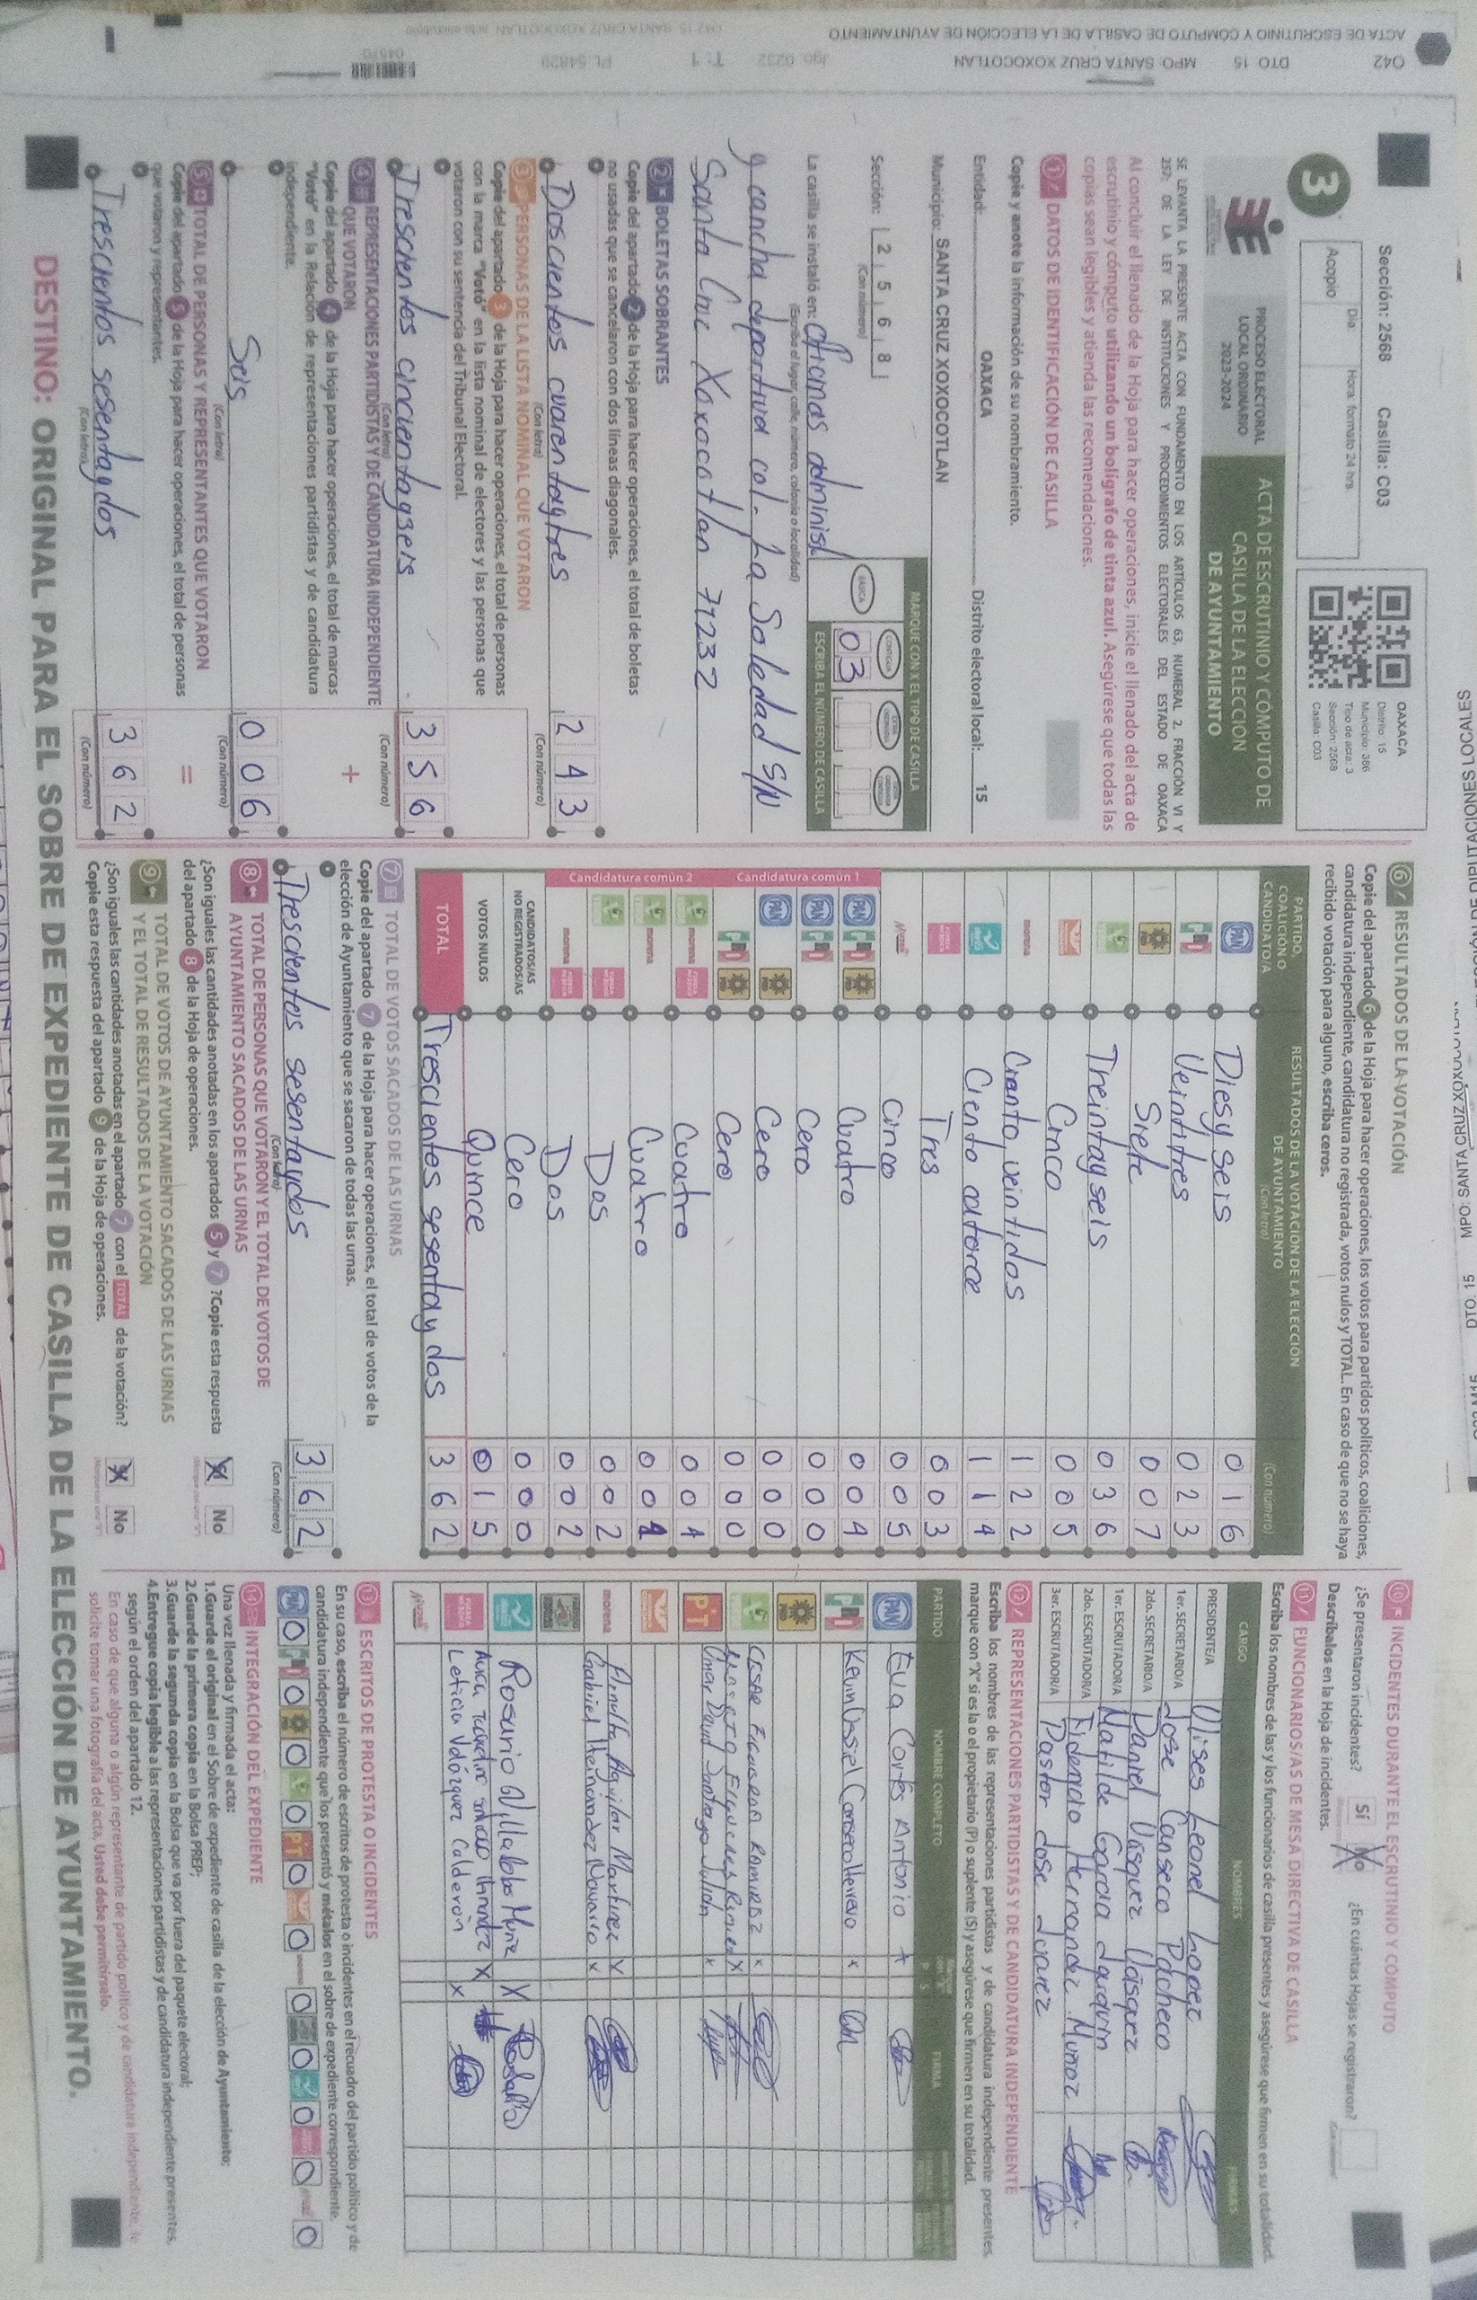 Sección: 2568 Casilla: C03
3
Día Hora: formato 24 hrs.
Acopio
OAXACA
Distrito: 15
Municipio: 386
Tipo de acta: 3
Sección: 2568
Casilla: C03
PROCESO ELECTORAL
LOCAL ORDINARIO
2023-2024
ACTA DE ESCRUTINIO Y CÓMPUTO DE
CASILLA DE LA ELECCIÓN
DE AYUNTAMIENTO
SE LEVANTA LA PRESENTE ACTA CON FUNDAMENTO EN LOS ARTÍCULOS 63, NUMERAL 2, FRACCIÓN VI Y
257; DE LA LEY DE INSTITUCIONES Y PROCEDIMIENTOS ELECTORALES DEL ESTADO DE OAXACA
Al concluir el llenado de la Hoja para hacer operaciones, inicie el llenado del acta de
escrutinio y cómputo utilizando un bolígrafo de tinta azul. Asegúrese que todas las
copias sean legibles y atienda las recomendaciones.
1 DATOS DE IDENTIFICACIÓN DE CASILLA
Copie y anote la información de su nombramiento.
Entidad: OAXACA Distrito electoral local: 15
Municipio: SANTA CRUZ XOXOCOTLAN
MARQUE CON X EL TIPO DE CASILLA
Sección: 2 5 6 8
(Con número)
BÁSICA
03
ESCRIBA EL NÚMERO DE CASILLA
La casilla se instaló en: Oficinas administ
(Escriba el lugar, calle, número, colonia o localidad)
y cancha deportiva col. La Soledad S/N
Santa Cruz Xoxocotlan 71232
2 BOLETAS SOBRANTES
Copie del apartado 2 de la Hoja para hacer operaciones, el total de boletas
no usadas que se cancelaron con dos líneas diagonales.
Doscientos cuarentaytres 2 4 3
(Con letra) (Con número)
3 PERSONAS DE LA LISTA NOMINAL QUE VOTARON
Copie del apartado 3 de la Hoja para hacer operaciones, el total de personas
con la marca "Votó" en la lista nominal de electores y las personas que
votaron con su sentencia del Tribunal Electoral.
Trescientos cincientayseis 3 5 6
(Con letra) (Con número)
4 REPRESENTACIONES PARTIDISTAS Y DE CANDIDATURA INDEPENDIENTE
QUE VOTARON
Copie del apartado 4 de la Hoja para hacer operaciones, el total de marcas
"Votó" en la Relación de representaciones partidistas y de candidatura
independiente.
+
Seis 0 0 6
(Con letra) (Con número)
5 TOTAL DE PERSONAS Y REPRESENTANTES QUE VOTARON
Copie del apartado 5 de la Hoja para hacer operaciones, el total de personas
que votaron y representantes.
=
Trescientos sesentaydos 3 6 2
(Con letra) (Con número)
6 RESULTADOS DE LA VOTACIÓN
Copie del apartado 6 de la Hoja para hacer operaciones, los votos para partidos políticos, coaliciones,
candidatura independiente, candidatura no registrada, votos nulos y TOTAL. En caso de que no se haya
recibido votación para alguno, escriba ceros.
PARTIDO,
COALICIÓN O
CANDIDATO/A
RESULTADOS DE LA VOTACIÓN DE LA ELECCIÓN
DE AYUNTAMIENTO
(Con letra) (Con número)
PAN Diesy seis 0 1 6
Veintitres 0 2 3
Siete 0 0 7
Treintayseis 0 3 6
Cinco 0 0 5
morena Cianto, veintidos 1 2 2
Ciento catorce 1 1 4
Tres 0 0 3
Cinco 0 0 5
Candidatura común 1
Cuatro 0 0 4
Cero 0 0 0
Cero 0 0 0
Cero 0 0 0
Candidatura común 2
Cuatro 0 0 4
Cuatro 0 0 4
Dos 0 0 2
Dos 0 0 2
CANDIDATOS/AS
NO REGISTRADOS/AS Cero 0 0 0
VOTOS NULOS Quince 0 1 5
TOTAL Trescientos sesentaydos 3 6 2
7 TOTAL DE VOTOS SACADOS DE LAS URNAS
Copie del apartado 7 de la Hoja para hacer operaciones, el total de votos de la
elección de Ayuntamiento que se sacaron de todas las urnas.
Trescientos sesentaydos 3 6 2
(Con letra) (Con número)
8 TOTAL DE PERSONAS QUE VOTARON Y EL TOTAL DE VOTOS DE
AYUNTAMIENTO SACADOS DE LAS URNAS
¿Son iguales las cantidades anotadas en los apartados 5 y 7? Copie esta respuesta
del apartado 8 de la Hoja de operaciones. No
9 TOTAL DE VOTOS DE AYUNTAMIENTO SACADOS DE LAS URNAS
Y EL TOTAL DE RESULTADOS DE LA VOTACIÓN
¿Son iguales las cantidades anotadas en el apartado 7 con el TOTAL de la votación?
Copie esta respuesta del apartado 9 de la Hoja de operaciones. No
10 INCIDENTES DURANTE EL ESCRUTINIO Y CÓMPUTO
¿Se presentaron incidentes? Sí No ¿En cuántas Hojas se registraron?
Descríbalos en la Hoja de incidentes.
11 FUNCIONARIOS/AS DE MESA DIRECTIVA DE CASILLA
Escriba los nombres de las y los funcionarios de casilla presentes y asegúrese que firmen en su totalidad.
CARGO NOMBRES FIRMAS
PRESIDENTE/A Ulises Leonel Lopez
1er. SECRETARIO/A Jose Canseco Pacheco
2do. SECRETARIO/A Daniel Vasquez Vasquez
1er. ESCRUTADOR/A Matilde Garcia Joaquin
2do. ESCRUTADOR/A Fidencio Hernandez Muñoz
3er. ESCRUTADOR/A Pastor Jose Juarez
12 REPRESENTACIONES PARTIDISTAS Y DE CANDIDATURA INDEPENDIENTE
Escriba los nombres de las representaciones partidistas y de candidatura independiente presentes,
marque con "X" si es la o el propietario (P) o suplente (S) y asegúrese que firmen en su totalidad.
PARTIDO NOMBRE COMPLETO P S FIRMA
PAN Eva Cortés Antonio
Kevin Ussiel Canseco Herrera
CESAR FIGUEROA RAMIREZ
PT Omar David Santiago Julián
morena Pinelta Aguilar Martinez
Gabriel Hernandez Navarro
Rosario Villalobos Muñiz
Leticia Velázquez Calderón
13 ESCRITOS DE PROTESTA O INCIDENTES
En su caso, escriba el número de escritos de protesta o incidentes en el recuadro del partido político y de
candidatura independiente que los presentó y métalos en el sobre de expediente correspondiente.
PAN 0 0 0 0 PT 0 0 0 0 0 0 0
14 INTEGRACIÓN DEL EXPEDIENTE
Una vez llenada y firmada el acta:
1.Guarde el original en el Sobre de expediente de casilla de la elección de Ayuntamiento;
2.Guarde la primera copia en la Bolsa PREP;
3.Guarde la segunda copia en la Bolsa que va por fuera del paquete electoral;
4.Entregue copia legible a las representaciones partidistas y de candidatura independiente presentes,
según el orden del apartado 12.
En caso de que alguna o algún representante de partido político y de candidatura independiente, le
solicite tomar una fotografía del acta, Usted debe permitírselo.
DESTINO: ORIGINAL PARA EL SOBRE DE EXPEDIENTE DE CASILLA DE LA ELECCIÓN DE AYUNTAMIENTO.
042 DTO. 15 MPO. SANTA CRUZ XOXOCOTLAN
ACTA DE ESCRUTINIO Y CÓMPUTO DE CASILLA DE LA ELECCIÓN DE AYUNTAMIENTO